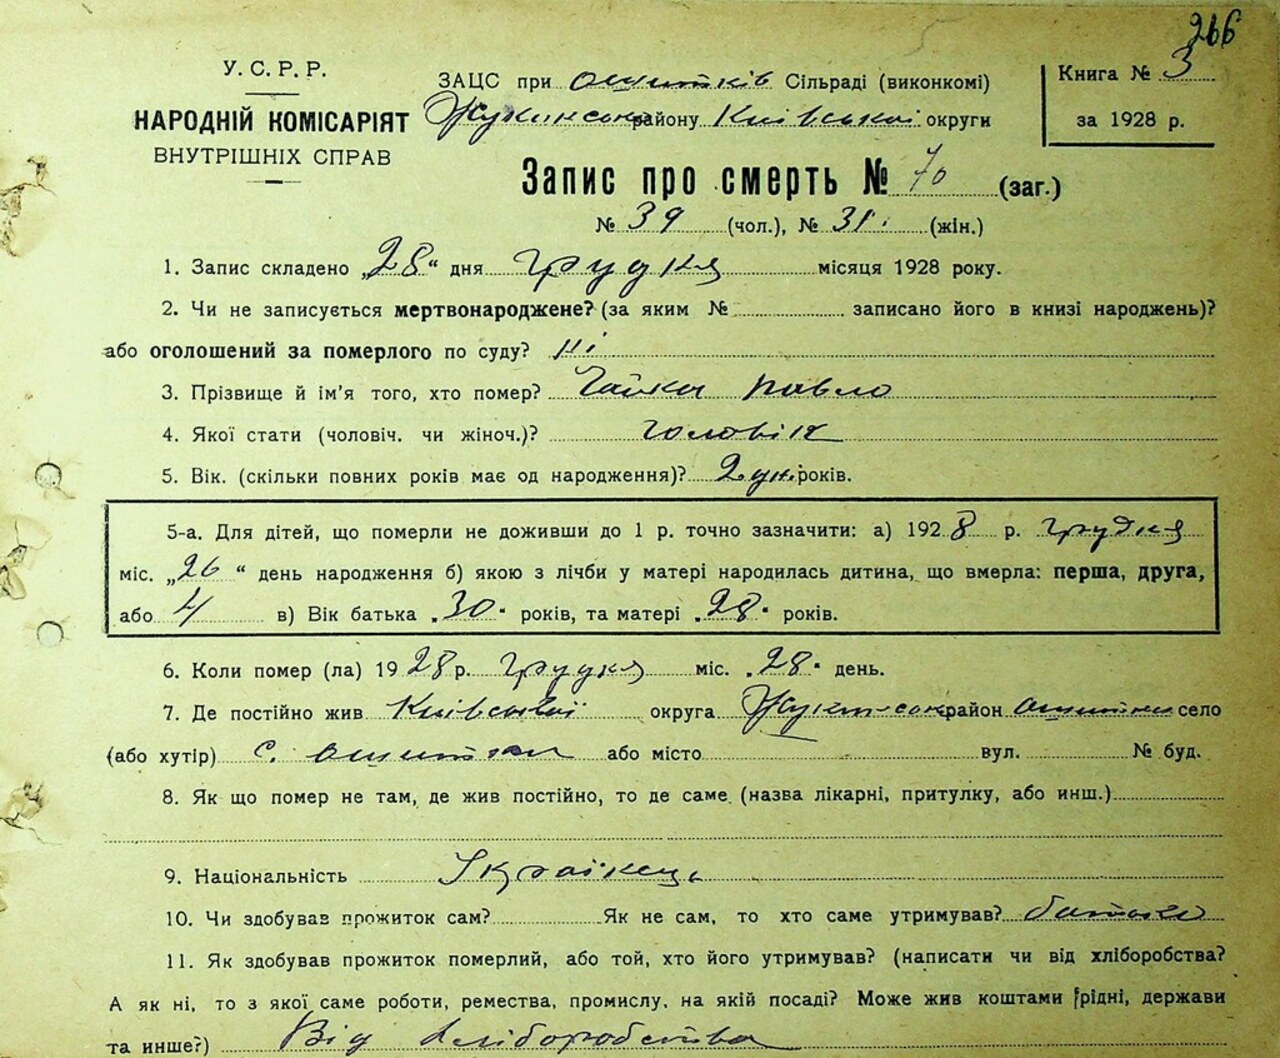 266
У.С.Р.Р.
НАРОДНІЙ КОМІСАРІЯТ
ВНУТРІШНІХ СПРАВ
ЗАЦС при Ошитків Сільраді (виконкомі)
Жукинськ району Київської округи
Книга № 3
за 1928 р.
Запис про смерть № 70 (заг.)
№ 39 (чол.), № 31. (жін.)
1. Запис складено „28“ дня грудня місяця 1928 року.
2. Чи не записується мертвонароджене? (за яким № записано його в книзі народжень)?
або оголошений за померлого по суду? ні
3. Прізвище й ім'я того, хто помер? Чайка Павло
4. Якої стати (чоловіч. чи жіноч.)? чоловік
5. Вік. (скільки повних років має од народження)? 2 дн. років.
5-а. Для дітей, що померли не доживши до 1 р. точно зазначити: а) 1928 р. грудня
міс. „26“ день народження б) якою з лічби у матері народилась дитина, що вмерла: перша, друга,
або 4 в) Вік батька „30“ років, та матері „28“ років.
6. Коли помер (ла) 1928 р. грудня міс. „28“ день.
7. Де постійно жив Київської округа Жукинськ район Ошитки село
(або хутір) с. Ошитки або місто вул. № буд.
8. Як що помер не там, де жив постійно, то де саме (назва лікарні, притулку, або инш.)
9. Національність Українець
10. Чи здобував прожиток сам? Як не сам, то хто саме утримував? батько
11. Як здобував прожиток померлий, або той, хто його утримував? (написати чи від хліборобства?
А як ні, то з якої саме роботи, ремества, промислу, на якій посаді? Може жив коштами рідні, держави
та инше?) Від хліборобства